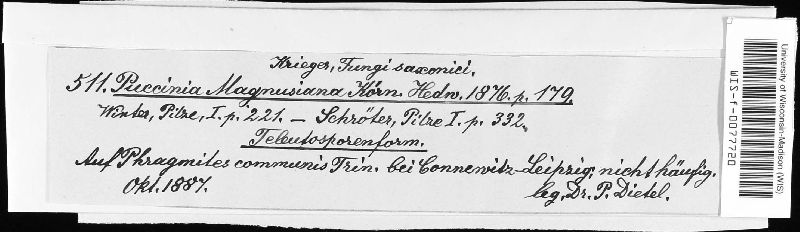 Krieger, Fungi saxonici.
511. Puccinia Magnusiana Körn. Hedw. 1876. p. 179.
Winter, Pilze, I. p. 221. — Schröter, Pilze I. p. 332.
Teleutosporenform.
Auf Phragmites communis Trin. bei Connewitz-Leipzig; nicht häufig.
Okt. 1887. leg. Dr. P. Dietel.
University of Wisconsin-Madison (WIS)
WIS-f-0077720